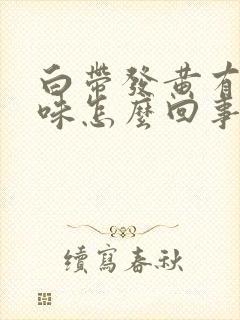 白帶發黃有
味怎麼回事
續寫春秋